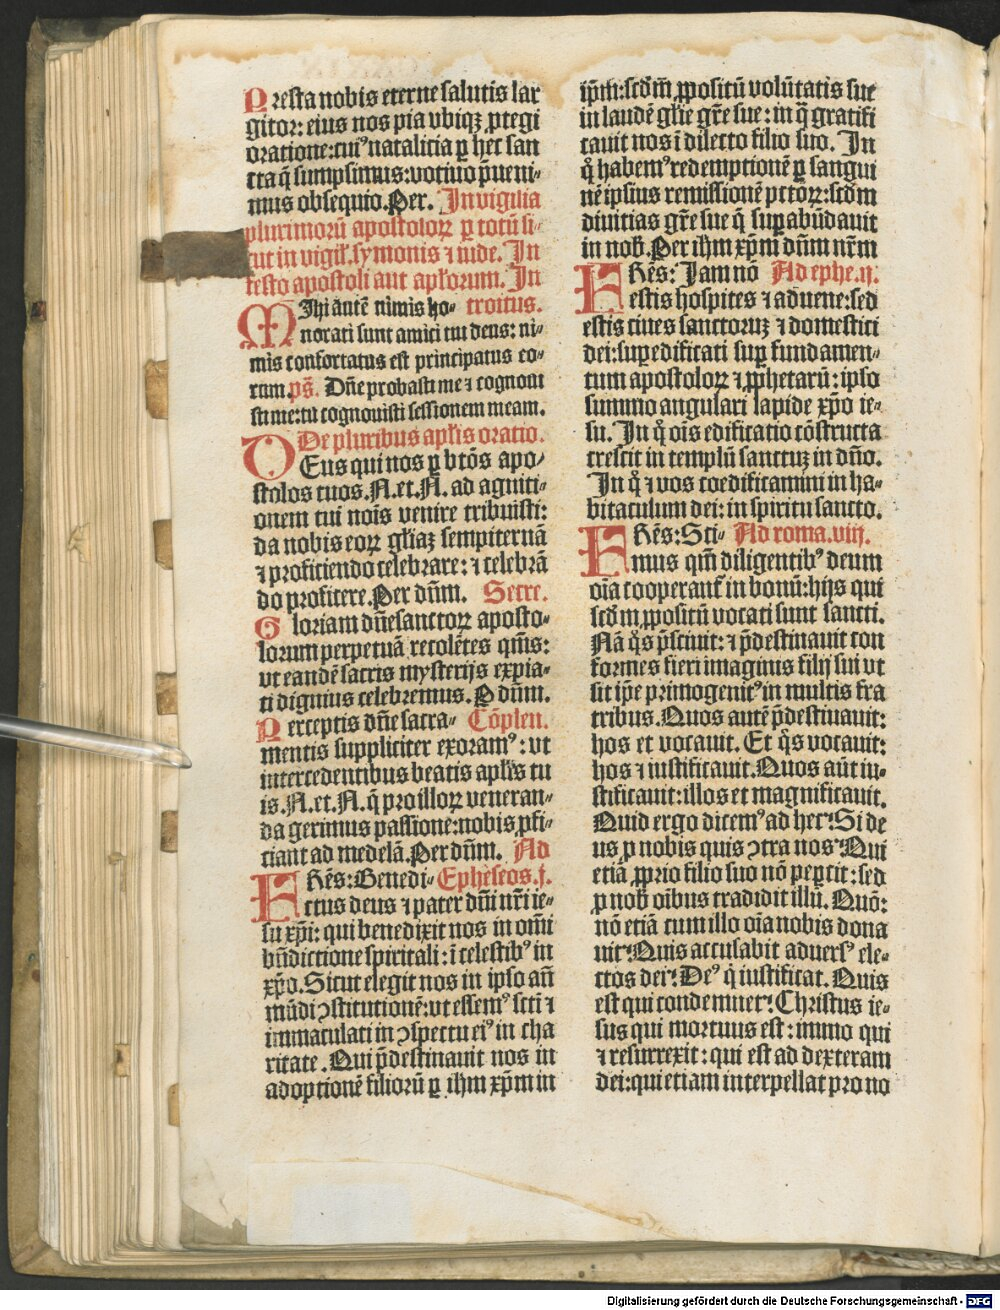 Presta nobis eterne salutis lar
gitor: eius nos pia vbiqꝫ ꝓtegi
oratione: cuiꝰ natalicia ꝑ hec san
cta q̄ sumpsimus: votiuo p̄ueni⸗
mus obsequio. Per. In vigilia
plurimorū apostoloꝝ ꝑ totū si⸗
cut in vigil̓. symonis ⁊ iude. In
festo apostoli aut apl̓orum. In
MIhi autē nimis ho⸗ troitus.
norati sunt amici tui deus: ni⸗
mis confortatus est principatus eo⸗
rum. ps̄. Dn̄e probasti me ⁊ cognoui
sti me: tu cognouisti sessionem meam.
De pluribus apl̓is oratio.
DEus qui nos ꝑ btōs apo⸗
stolos tuos. N. et. N. ad agniti⸗
onem tui noīs venire tribuisti:
da nobis eoꝝ gl̓iaꝫ sempiternā
⁊ proficiendo celebrare: ⁊ celebrā
do proficere. Per dn̄m. Secre.
Gloriam dn̄e sanctoꝝ aposto⸗
lorum perpetuā recolētes qm̄s:
vt eandē sacris mysterijs expia⸗
ti dignius celebremus. P dn̄m.
Perceptis dn̄e sacra⸗ Cōplen.
mentis suppliciter exoramꝰ: vt
intercedentibus beatis apl̓is tu
is. N. et. N. q̄ pro illoꝝ veneran⸗
da gerimus passione: nobis ꝓfi⸗
ciant ad medelā. Per dn̄m. Ad
FRēs: Benedi⸗ Epheseos. j.
ctus deus ⁊ pater dn̄i nr̄i ie⸗
su xp̄i: qui benedixit nos in om̄i
bn̄dictione spiritali: ī celestibꝰ in
xp̄o. Sicut elegit nos in ipso an̄
mūdi ꝯstitutionē: vt essemꝰ scti ⁊
immaculati in ꝯspectu eiꝰ in cha
ritate. Qui p̄destinauit nos in
adoptionē filiorū ꝑ ihm xp̄m in
ip̄m: scd̄m ꝓpositū volūtatis sue
in laudē gl̓ie gr̄e sue: in q̄ gratifi
cauit nos ī dilecto filio suo. In
q̊ habemꝰ redemptionē ꝑ sangui
nē ipsius remissionē pctōꝝ: scd̄m
diuitias gr̄e sue q̄ suꝑabūdauit
in nob̓. Per ihm xp̄m dn̄m nr̄m
FRēs: Jam nō Ad ephe. ij.
estis hospites ⁊ aduene: sed
estis ciues sanctoruꝫ ⁊ domestici
dei: suꝑedificati suꝑ fundamen⸗
tum apostoloꝝ ⁊ ꝓphetarū: ipso
summo angulari lapide xp̄o ie⸗
su. In q̊ oīs edificatio cōstructa
crescit in templū sanctuꝫ in dn̄o.
In q̊ ⁊ vos coedificamini in ha⸗
bitaculum dei: in spiritu sancto.
FRēs: Sci⸗ Ad roma. viij.
mus qm̄ diligentibꝰ deum
oīa cooperant̓ in bonū: hijs qui
scd̄m ꝓpositū vocati sunt sancti.
Nā q̊s p̄sciuit: ⁊ p̄destinauit con
formes fieri imaginis filij sui vt
sit ip̄e primogenitꝰ in multis fra
tribus. Quos autē p̄destinauit:
hos et vocauit. Et q̊s vocauit:
hos ⁊ iustificauit. Quos aūt iu⸗
stificauit: illos et magnificauit.
Quid ergo dicemꝰ ad hec? Si de
us p nobis quis ꝯtra nos? Qui
etiā ꝓprio filio suo nō peꝑcit: sed
ꝓ nob̓ oībus tradidit illū. Quō:
nō etiā cum illo oīa nobis dona
uit? Quis accusabit aduersꝰ ele⸗
ctos dei? Deꝰ q̄ iustificat. Quis
est qui condemnet? Christus ie⸗
sus qui mortuus est: immo qui
⁊ resurrexit: qui est ad dexteram
dei: qui etiam interpellat pro no
Digitalisierung gefördert durch die Deutsche Forschungsgemeinschaft - DFG